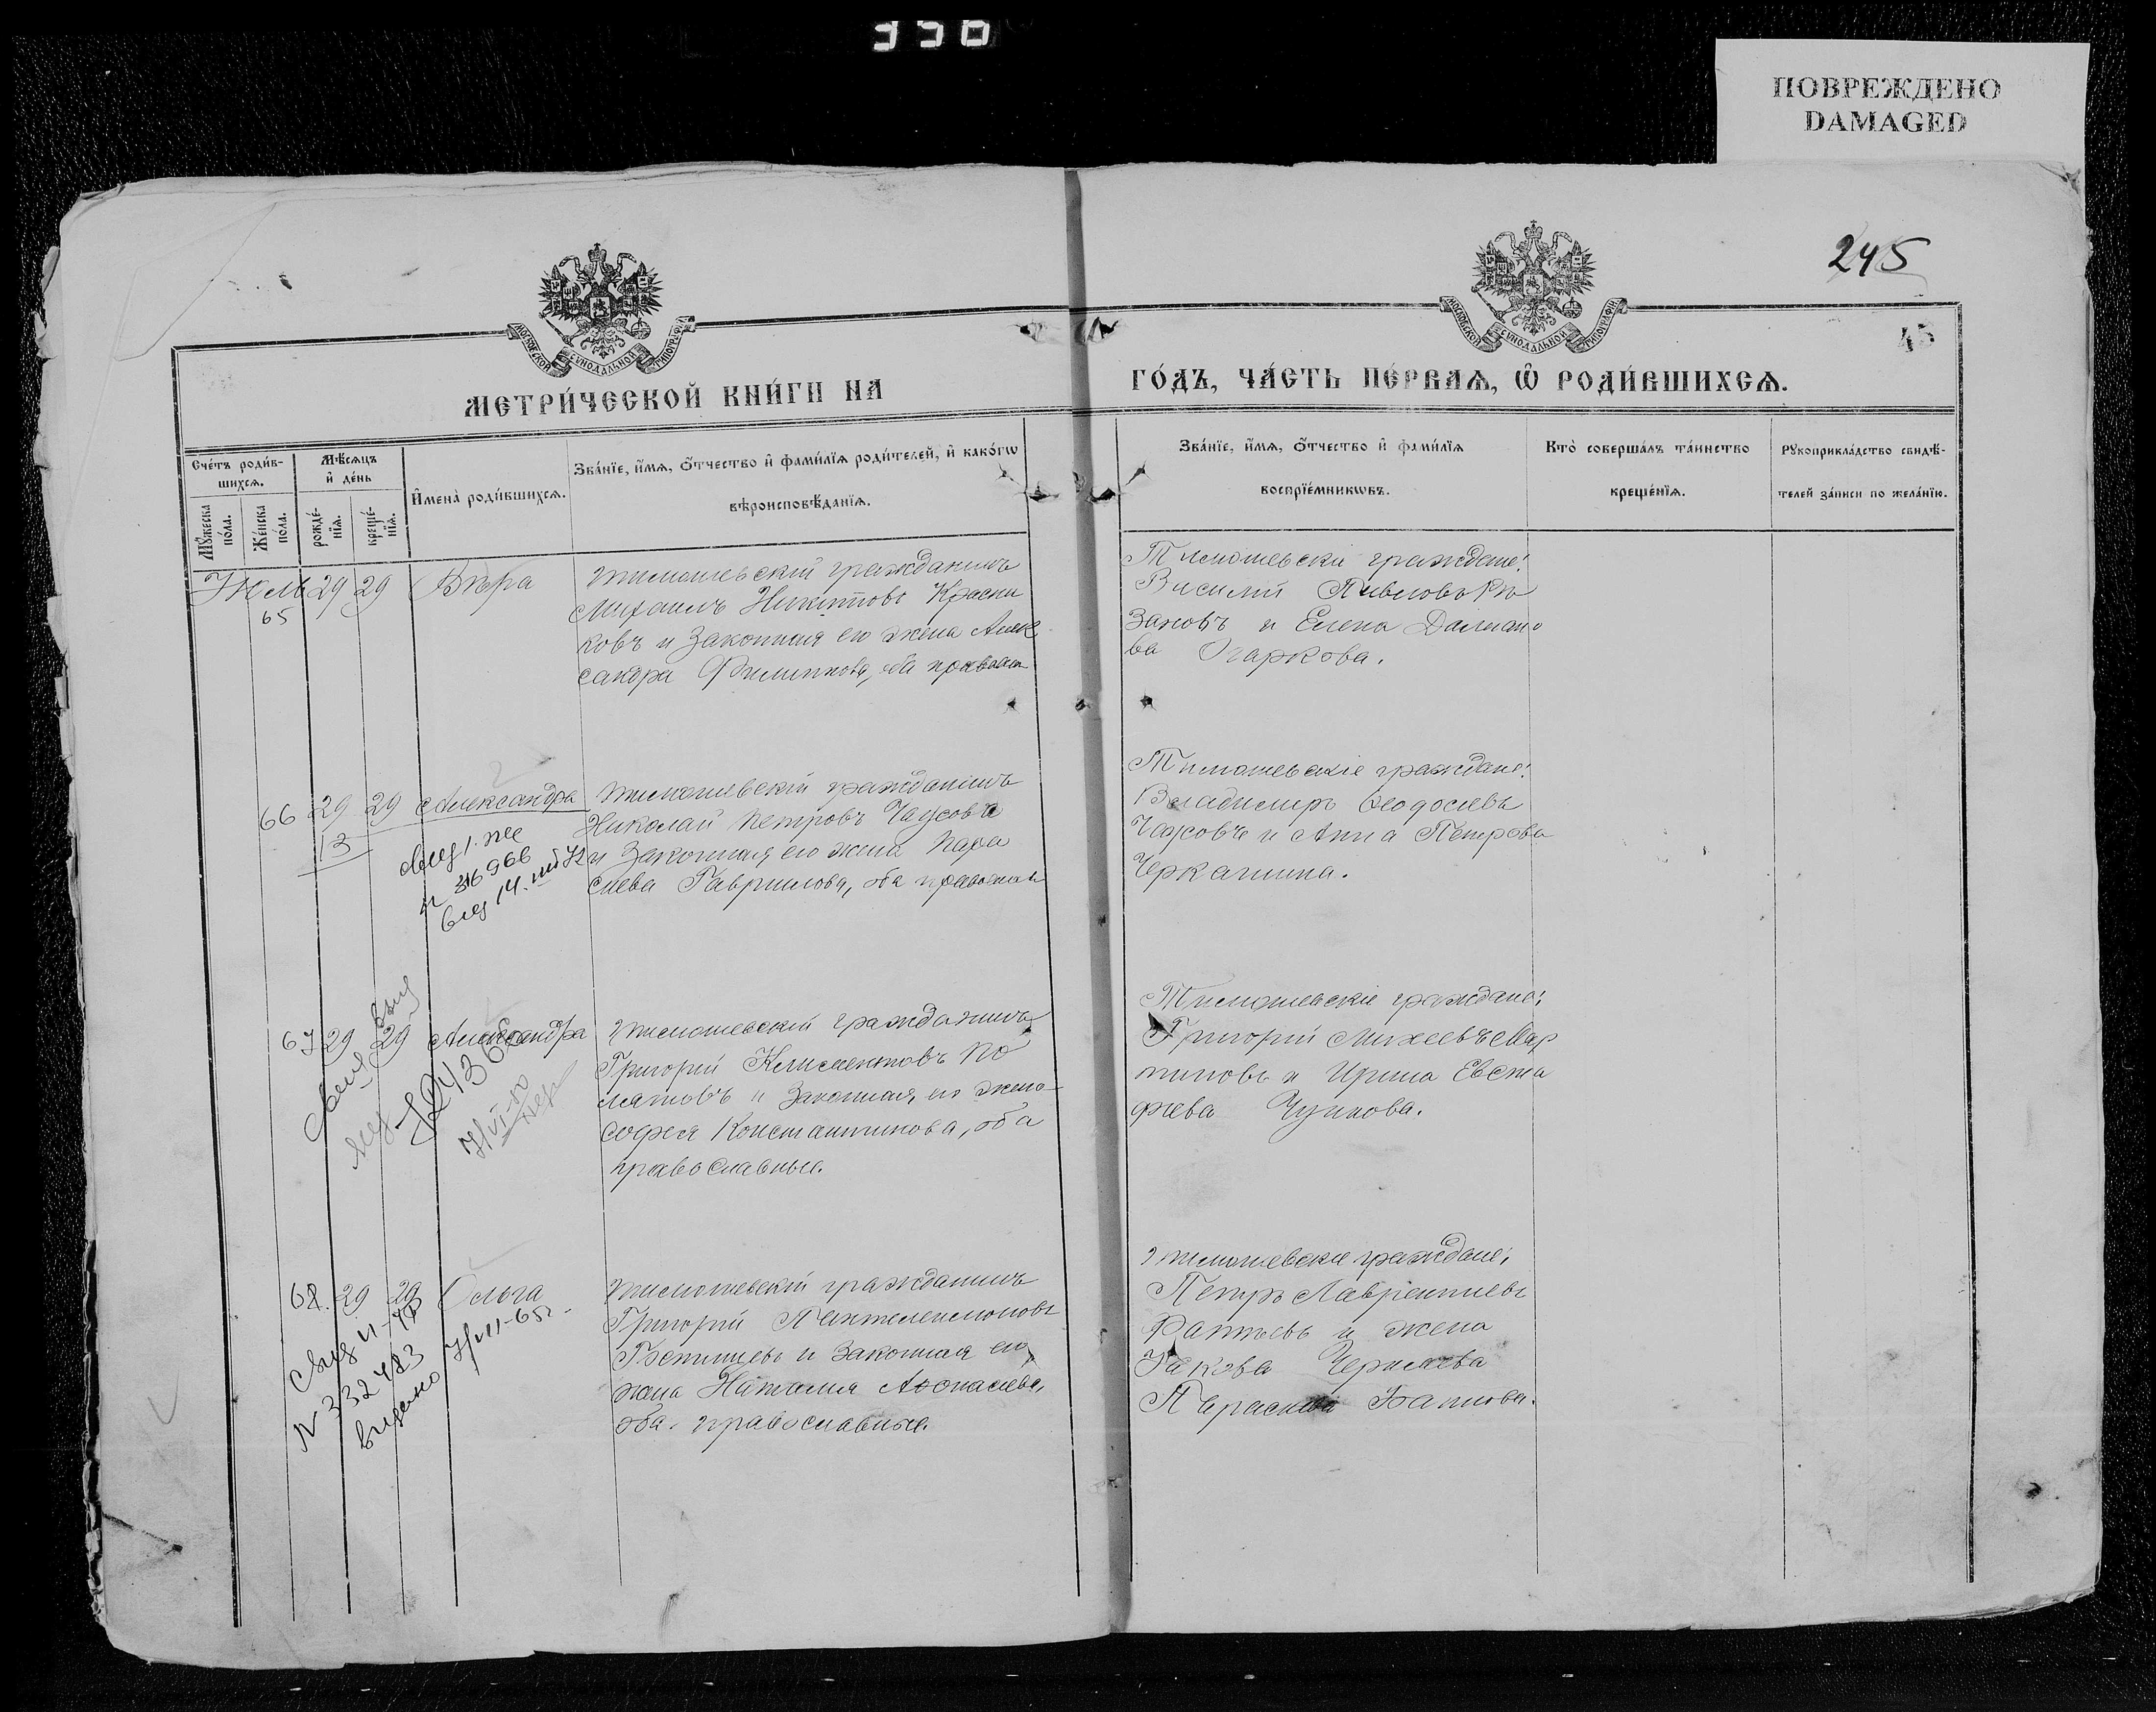 356
ПОВРЕЖДЕНО
DAMAGED
245
45
МОСКОВСКОЙ СѴНОДАЛЬНОЙ ТИПОГРАФІИ
МОСКОВСКОЙ СѴНОДАЛЬНОЙ ТИПОГРАФІИ
МЕТРИ́ЧЕСКОЙ КНИ́ГИ НА
ГО́ДЪ, ЧА́СТЬ ПЕ́РВАѦ, Ѡ҆ РОДИ́ВШИХСѦ.
Сче́тъ роди́в-
шихсѧ.
Мꙋ́жеска
по́ла.
Же́нска
по́ла.
Мѣ́сѧцъ
и҆ де́нь
рожде́-
нїѧ.
креще́-
нїѧ.
И҆мена̀ роди́вшихсѧ.
Зва́нїе, и҆́мѧ, ѻ҆́тчество и҆ фами́лїѧ роди́телей, и҆ како́гѡ
вѣроисповѣ́данїѧ.
Зва́нїе, и҆́мѧ, ѻ҆́тчество и҆ фами́лїѧ
воспрїе́мникѡвъ.
Кто̀ соверша́лъ та́инство
креще́нїѧ.
Рꙋкоприкла́дство свидѣ́-
телей за́писи по жела́нїю.
65
29 29 Вѣра
тимашевскій гражданинъ
Михаилъ Никитовъ Красни
ковъ и законная его жена Алек
сандра Филиппова, оба православн
гражда
Василій Павловъ
заковъ и Елена
ва Огаркова.
66 29 29 Александра
13
316966
14.
тимашевскій гражданинъ
Николай Петровъ Чаусовъ
и законная его жена Пара
скева Гаврилова, оба православн
Тимашевскіе граждане:
Владимиръ Ѳеодосіевъ
Чаусовъ и Анна Петрова
Черкашина.
67 29 29 Александра
тимашевскій гражданинъ
Григорій Климентовъ По
и законная его жена
Софія Константинова, оба
православные.
Тимашевскіе граждане:
Григорій Михеевъ Мар
тиновъ и Ирина Евста
фіева Чуйкова.
68. 29 29 Ольга
№ 332483
выдано
тимашевскій гражданинъ
Григорій Пантелеимоновъ
и законная его
жена Наталія Аѳонасіева,
оба православные.
тимашевскіе граждане:
Петръ Лаврентіевъ
и жена
Якова Черняева
Параскева